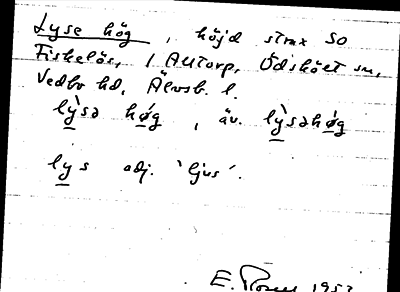 Lyse hög, höjd strax SO
Fiskelös, i Autorp, Ödskölt sn,
Vedbo hd, Älvsb. l.
lỳsə hø̀g, äv. lỳsəhøg
lys adj. 'ljus'.
E. 1953